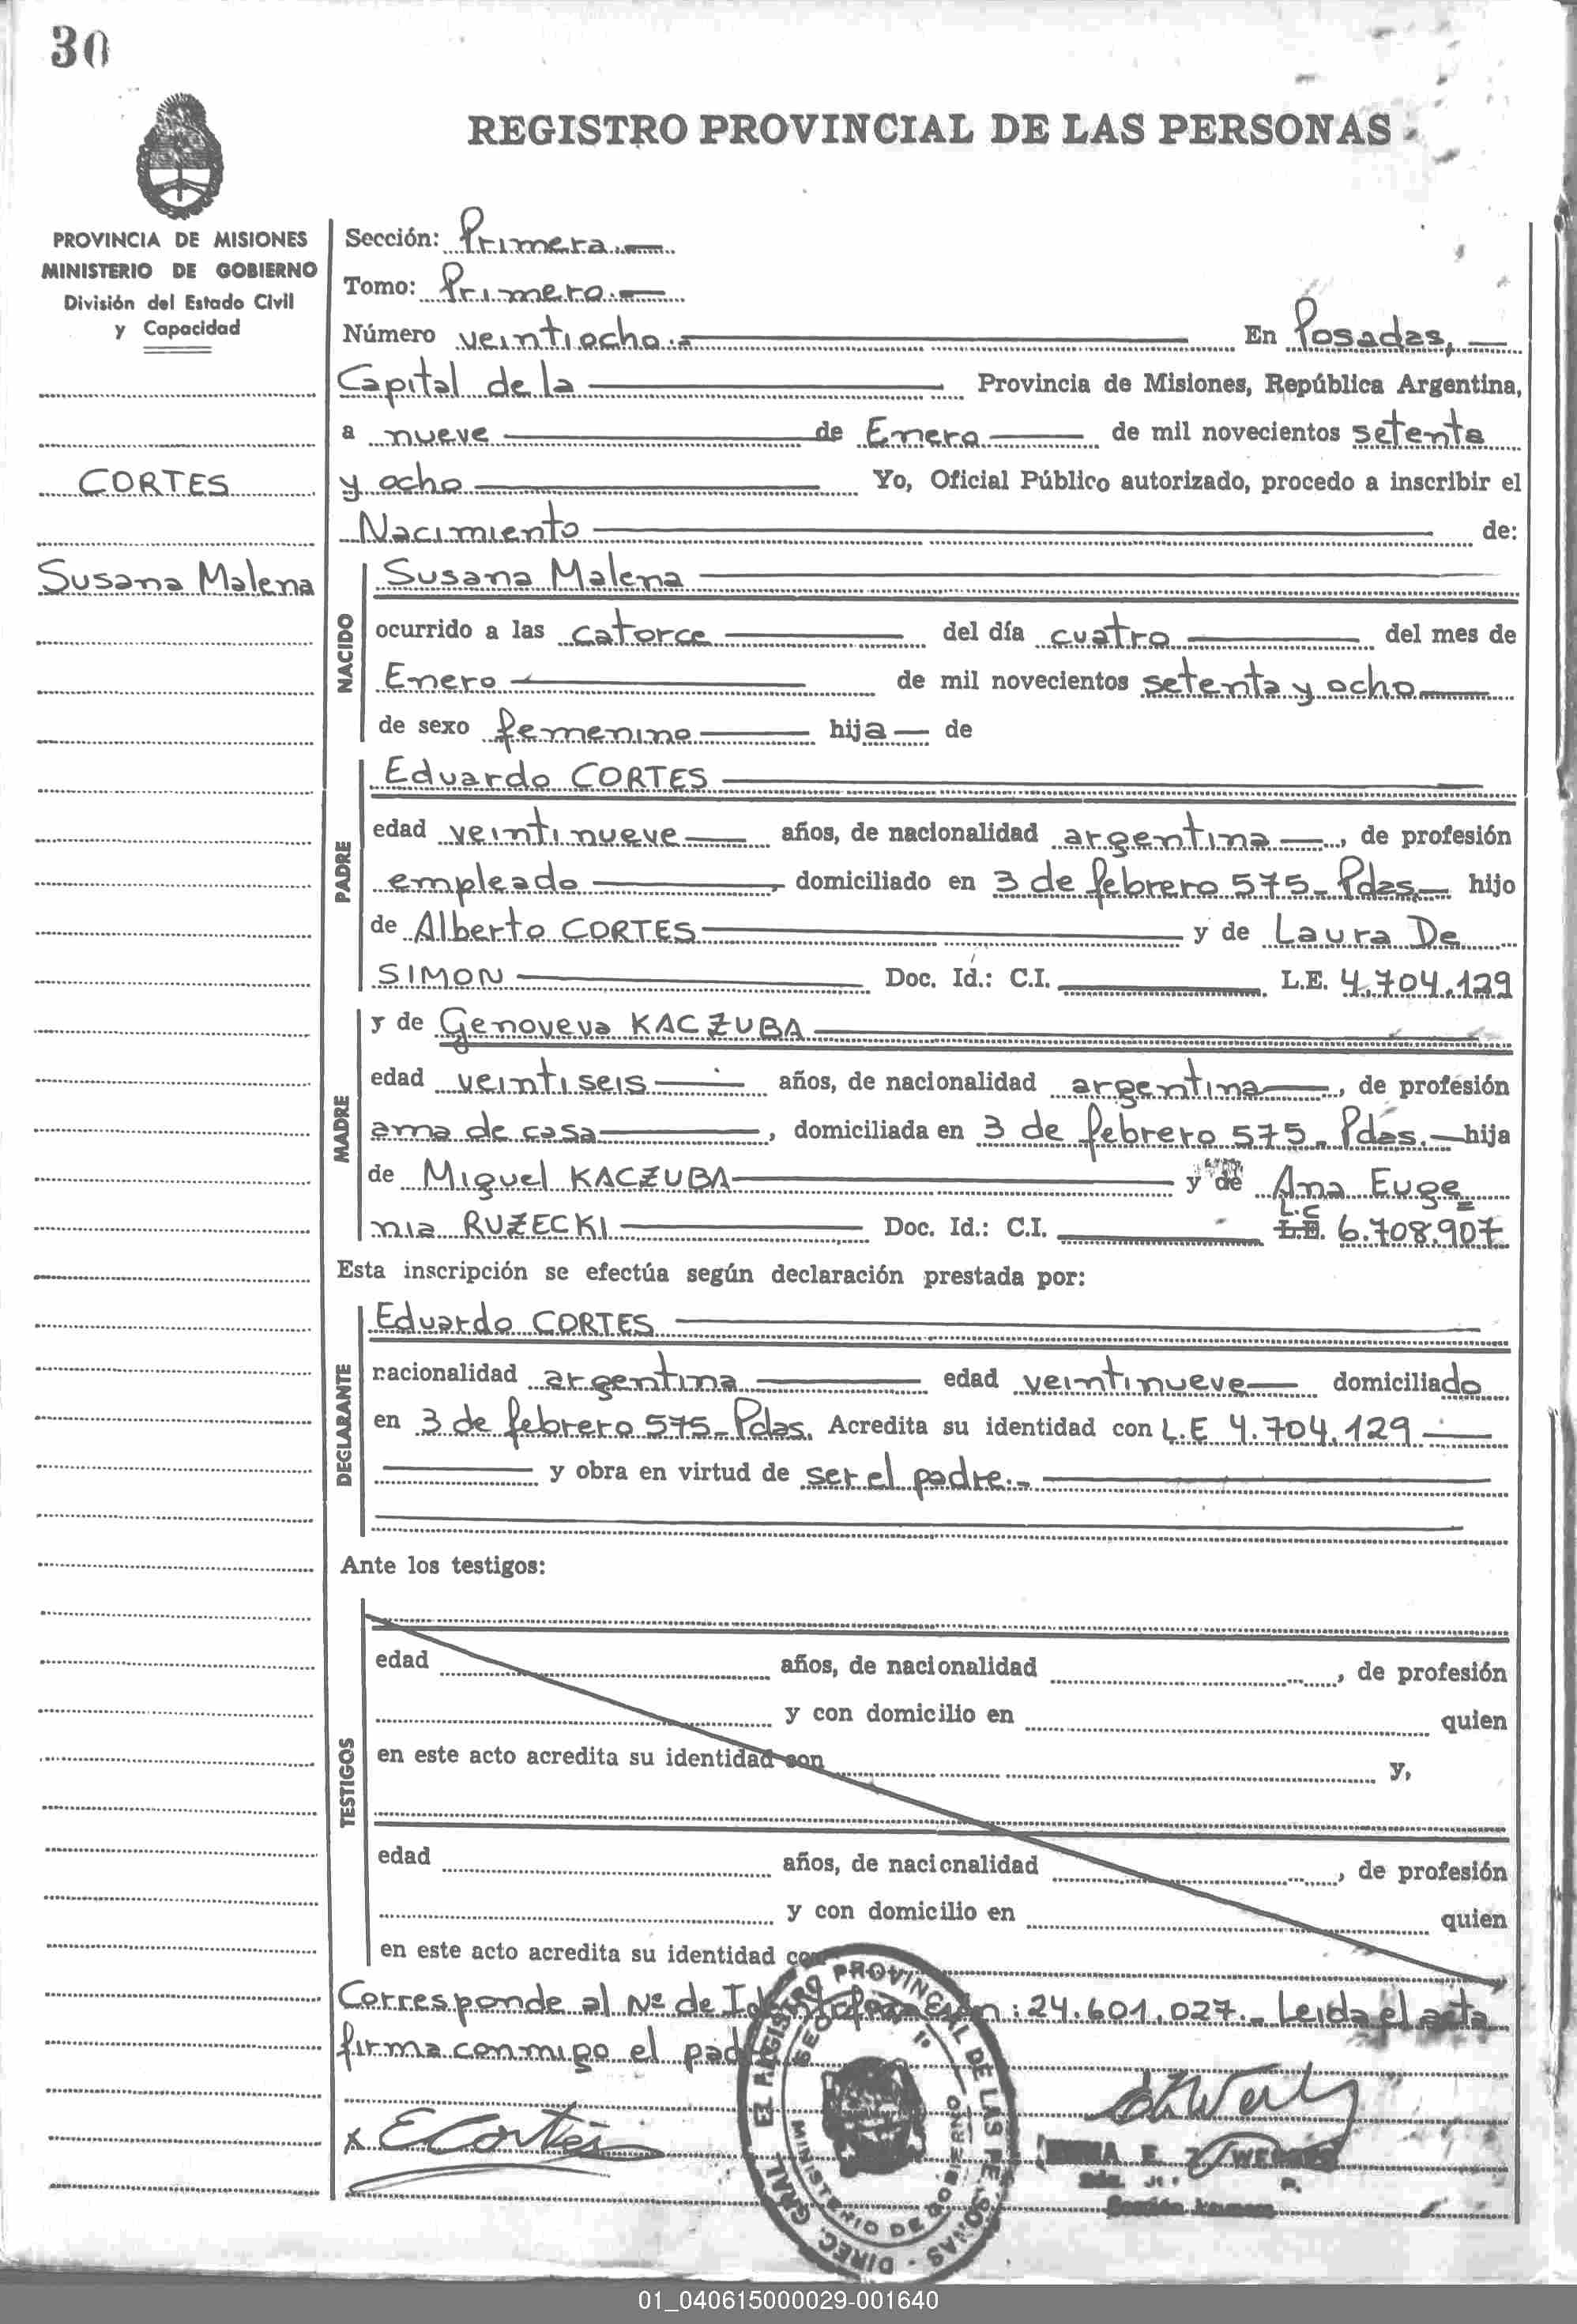 30
REGISTRO PROVINCIAL DE LAS PERSONAS
PROVINCIA DE MISIONES
MINISTERIO DE GOBIERNO
División del Estado Civil
y Capacidad
CORTES
Susana Malena
Sección: Primera.-
Tomo: Primero.-
Número veintiocho.- En Posadas,
Capital de la Provincia de Misiones, República Argentina,
a nueve de Enero de mil novecientos setenta
y ocho Yo, Oficial Público autorizado, procedo a inscribir el
Nacimiento de:
NACIDO
Susana Malena
ocurrido a las catorce del día cuatro del mes de
Enero de mil novecientos setenta y ocho
de sexo femenino hija de
PADRE
Eduardo CORTES
edad veintinueve años, de nacionalidad argentina, de profesión
empleado, domiciliado en 3 de febrero 575- Pdas. hijo
de Alberto CORTES y de Laura De
SIMON Doc. Id.: C.I. L.E. 4.704.129
MADRE
y de Genoveva KACZUBA
edad veintiseis años, de nacionalidad argentina, de profesión
ama de casa, domiciliada en 3 de febrero 575- Pdas. hija
de Miguel KACZUBA y de Ana Euge
nia RUZECKI Doc. Id.: C.I. L.C L.E. 6.708.907
Esta inscripción se efectúa según declaración prestada por:
DECLARANTE
Eduardo CORTES
nacionalidad argentina edad veintinueve domiciliado
en 3 de febrero 575- Pdas. Acredita su identidad con L.E 4.704.129
y obra en virtud de ser el padre.-
Ante los testigos:
TESTIGOS
edad años, de nacionalidad , de profesión
y con domicilio en quien
en este acto acredita su identidad con y,
edad años, de nacionalidad , de profesión
y con domicilio en quien
en este acto acredita su identidad con
Corresponde al Nº de Identificación: 24.601.027.- Leida el acta
firma conmigo el padre
x E Cortés
DIREC. GRAL. EL REGISTRO PROVINCIAL DE LAS PERSONAS
MINISTERIO DE GOBIERNO
01_040615000029-001640